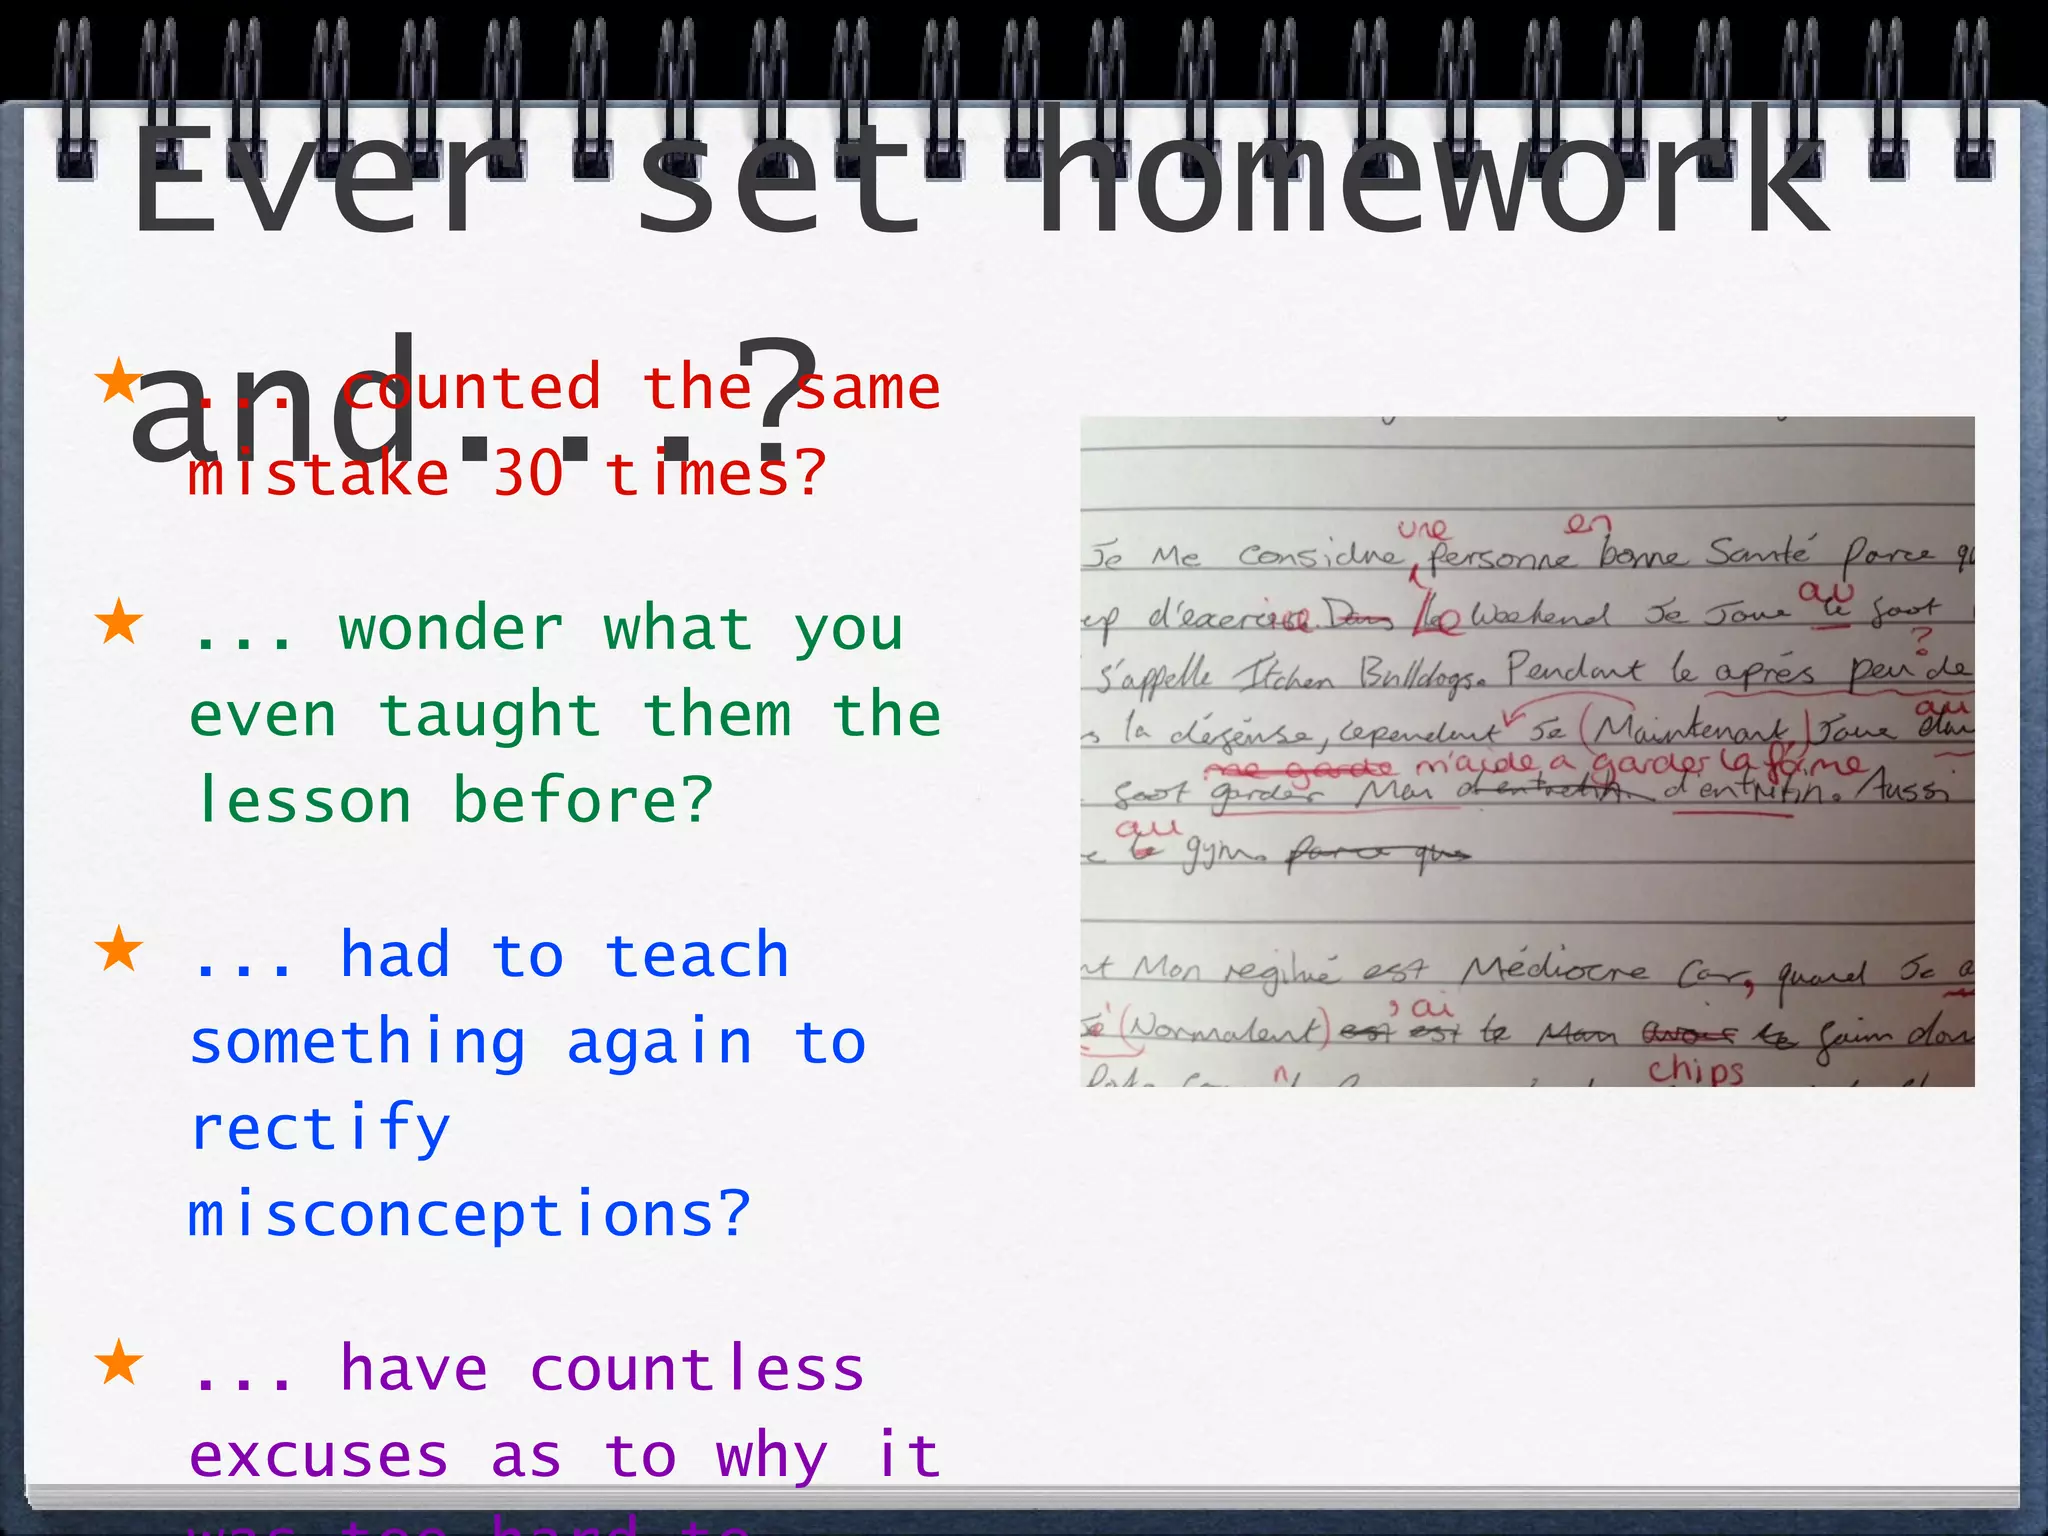 Ever set homework
and...?
★ ... counted the same
mistake 30 times?
★ ... wonder what you
even taught them the
lesson before?
★ ... had to teach
something again to
rectify
misconceptions?
★ ... have countless
excuses as to why it
was too hard to
une en
Je Me considre personne bonne Santé parce qu
au
d'exercise Dans le Weekend Je Joue le foot
?
s'appelle Itchen Bulldogs. Pendant le aprés peu de
au
la défénse, cependant Je (Maintenant) Joue
me garde m'aide a garder la forme
foot garder Mon d'entretin. d'entretin. Aussi
au
le gym. parce que
Mon regime est Médiocre Car, quand Je
, ai
Je (Normalent) est est le Man avoir le faim
chips